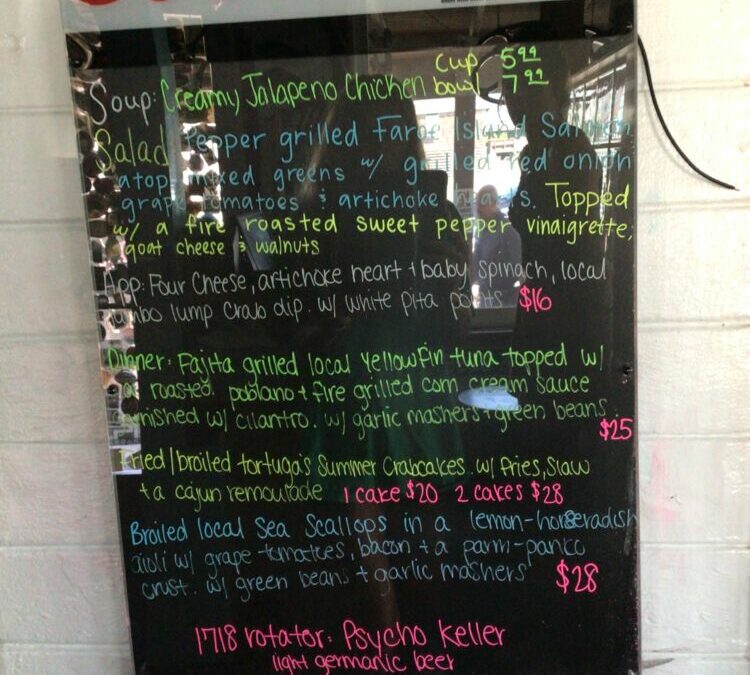 Soup: Creamy Jalapeno Chicken cup 5.99
bowl 7.99
Salad Pepper grilled Faroe Island Salmon
atop mixed greens w/ grilled red onion
grape tomatoes & artichoke hearts. Topped
w/ a fire roasted sweet pepper vinaigrette,
goat cheese & walnuts
App: Four Cheese, artichoke heart + baby spinach, local
jumbo lump crab dip. w/ white pita points $16
Dinner: Fajita grilled local yellowfin tuna topped w/
a roasted poblano + fire grilled corn cream sauce
garnished w/ cilantro. w/ garlic mashers + green beans.
$25
Fried/broiled tortuga's Summer Crabcakes. w/ fries, slaw
+ a cajun remoulade 1 cake $20 2 cakes $28
Broiled local Sea Scallops in a lemon-horseradish
aioli w/ grape tomatoes, bacon + a parm-panko
crust. w/ green beans + garlic mashers $28
1718 rotator: Psycho Keller
light germanic beer